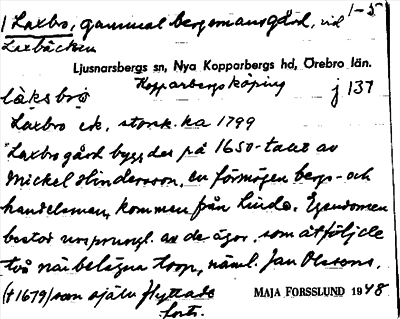 1 Laxbro, gammal bergsmansgård, vid 1-5
Laxbäcken
Ljusnarsbergs sn, Nya Kopparbergs hd, Örebro län.
Kopparbergs köping
j 137
laksbrò
Laxbro ek, stor sk. ka 1799
"Laxbro gård byggdes på 1650-talet av
Mickel Hindersson, en förmögen bergs- och
handelsman, kommen från Linde. Egendomen
bestod ursprungl. av de ägor, som åtföljde
två närbelägna torp, näml. Jan Olssons,
(†1679) som själv flyttade
MAJA FORSSLUND 1948
forts.